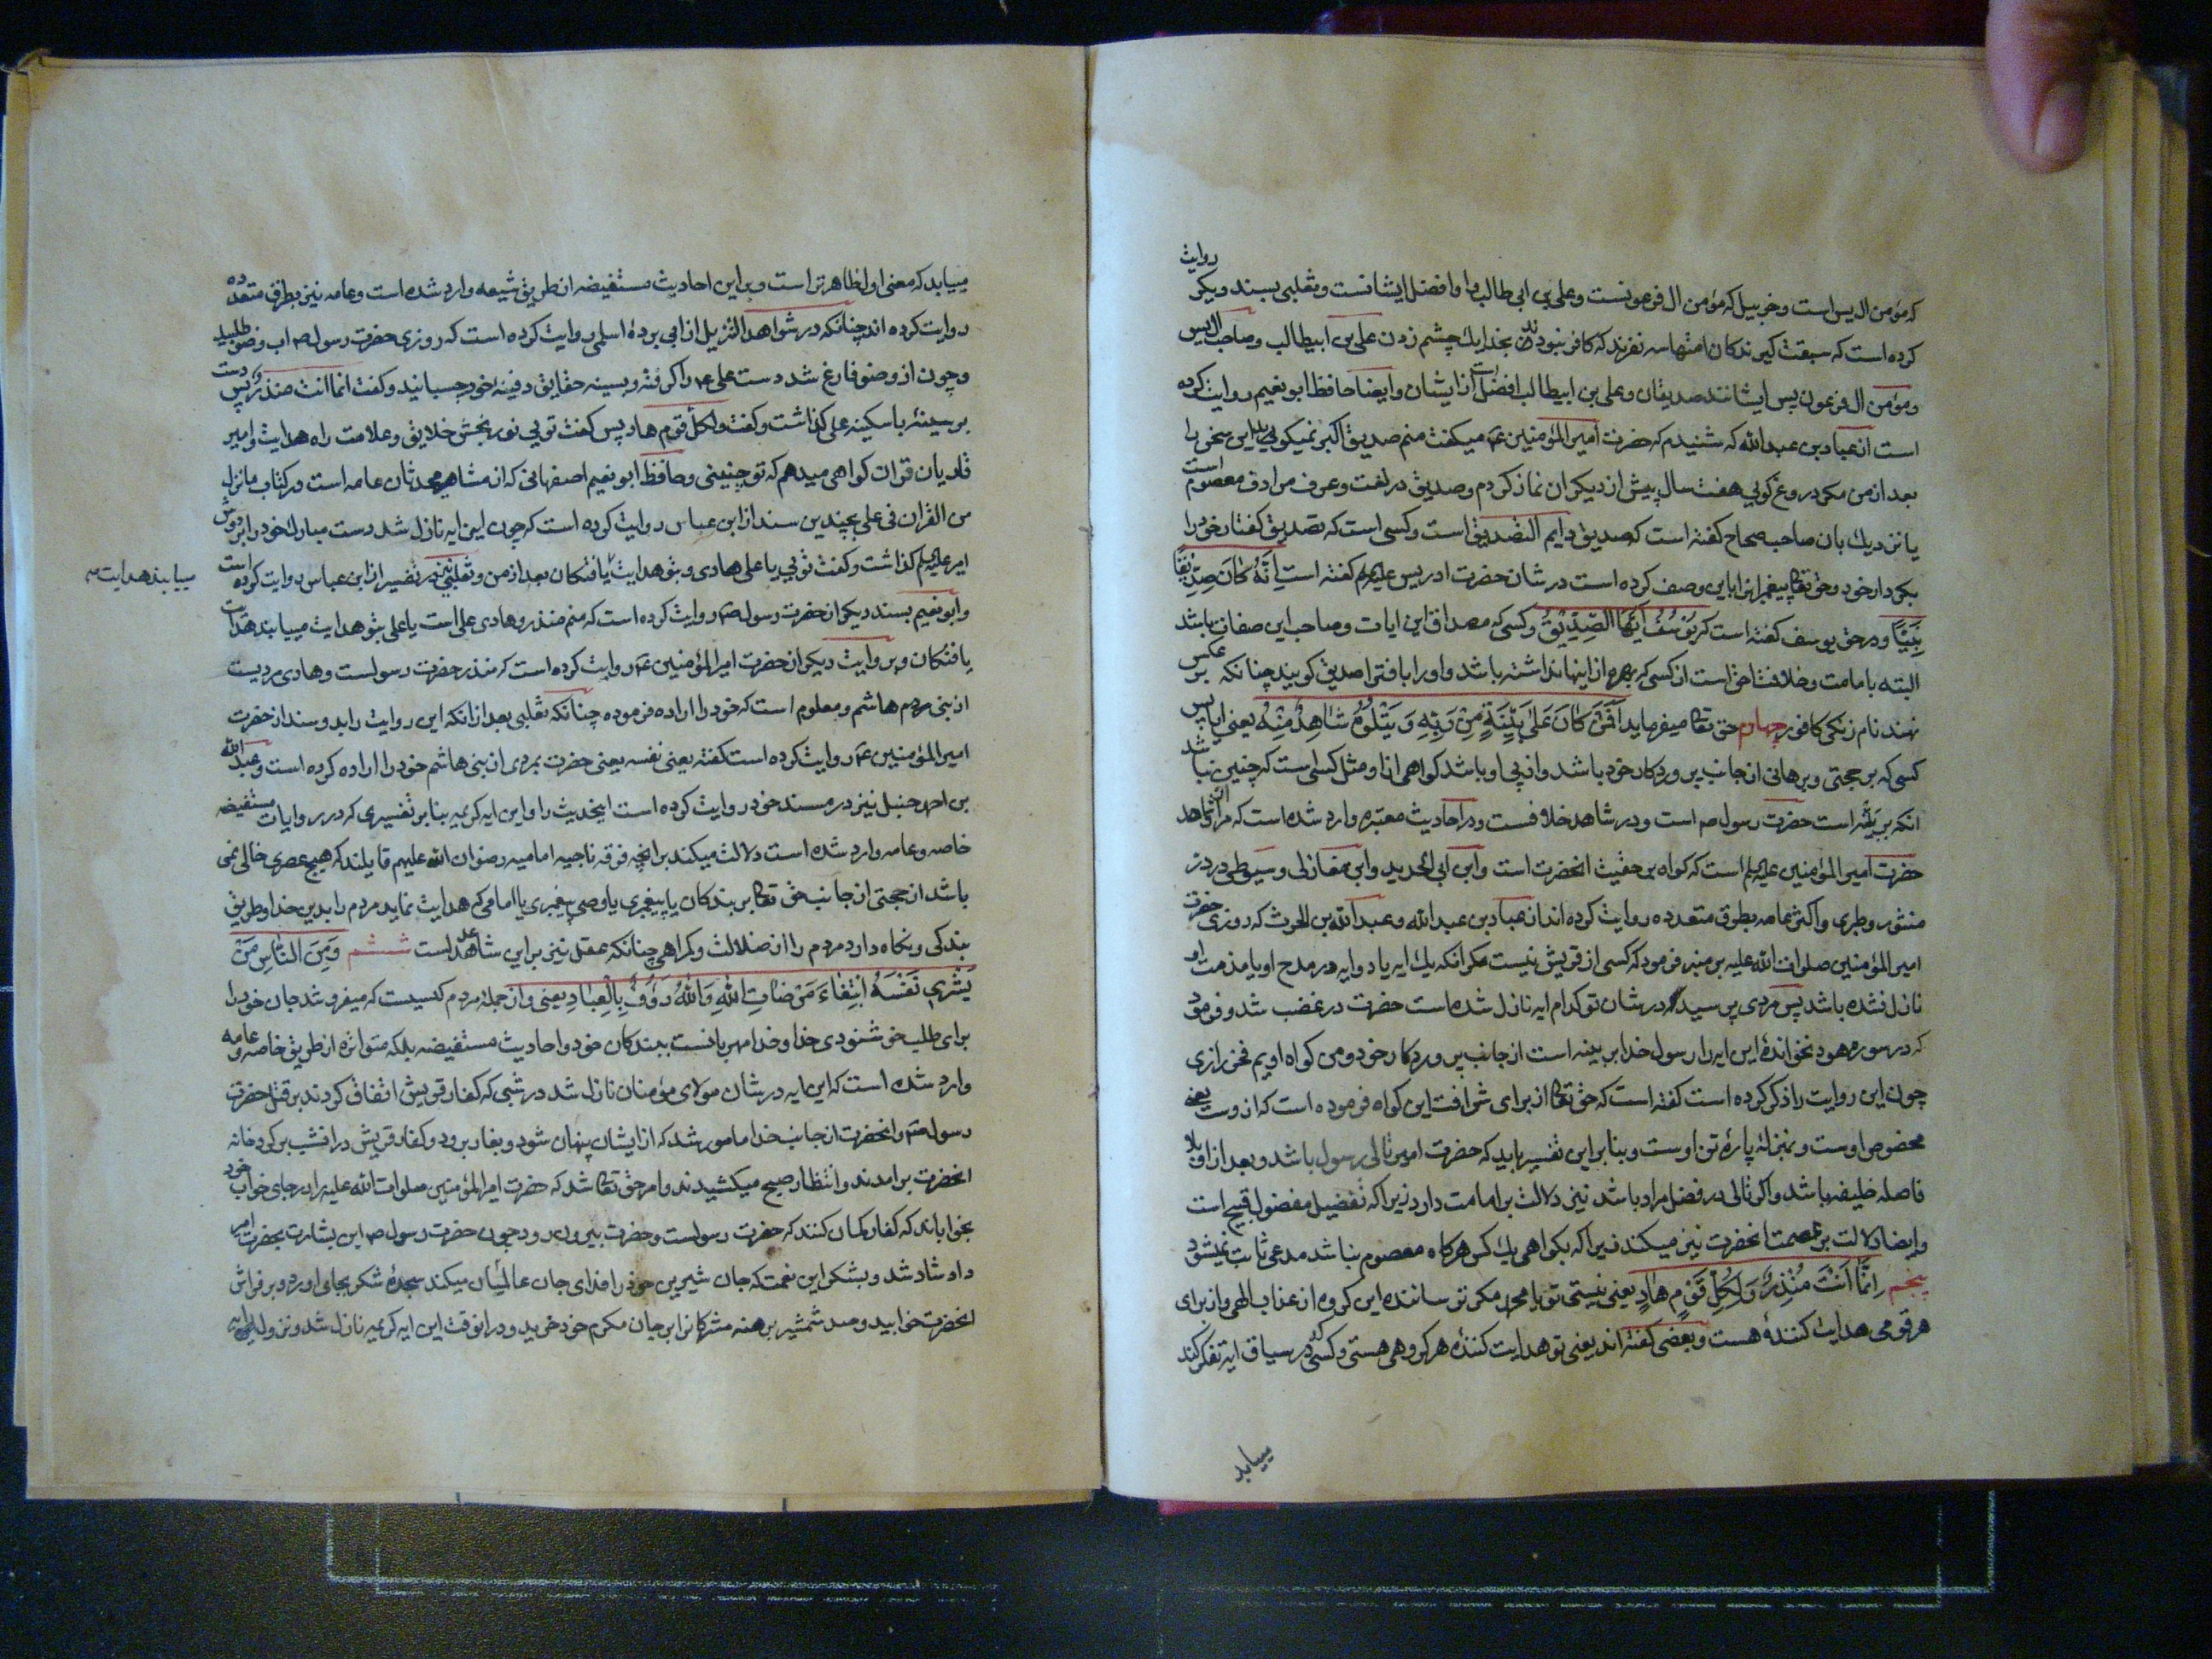 که مؤمن ال یس است و خربیل که مؤمن ال فرعونست و علی بن ابی طالب و او افضل ایشانست و ثعلبی بسند دیکر روایت
کرده است که سبقت کیرندکان امتها سه نفرند که کافر نبودند بخدا یك چشم زدن علی بن ابیطالب و صاحب ال یس
و مؤمن ال فرعون پس ایشانند صدیقان و علی بن ابیطالب افضل است از ایشان و ایضا حافظ ابو نعیم روایت کرده
است از عباد بن عبدالله که شنیدم که حضرت امیر المؤمنین ع میکفت منم صدیق اکبر نمیکوید این سخن را
بعد از من مکر دروغ کویی هفت سال پیش از دیکران نماز کردم و صدیق در لغت و عرف مرادف معصوم است
یا نزدیك بان صاحب صحاح کفته است که صدیق دایم التصدیق است و کسی است که تصدیق کفتار خود را
بکردار خود و حق تعا پیغمبران را باین وصف کرده است در شان حضرت ادریس علیه السلم کفته است اِنَّهُ کَانَ صِدِّیقًا
نَبِیًّا و در حق یوسف کفته است که یُوسُفُ اَیُّهَا الصِّدِّیقُ و کسی که مصداق این ایات و صاحب این صفات باشد
البته بامامت و خلافت احق است از کسی که بهره از اینها نداشته باشد و او را بافترا صدیق کویند چنانکه بر عکس
نهند نام زنکی کافور چهارم حق تعا میفرماید اَفَمَنْ کَانَ عَلَی بَیِّنَةٍ مِنْ رَبِّهِ وَ یَتْلُوهُ شَاهِدٌ مِنْهُ یعنی ایا پس
کسی که بر حجتی و برهانی از جانب پروردکار خود باشد و از پی او باشد کواهی از او مثل کسی است که چنین نباشد
انکه بر بینه است حضرت رسول ص است و در شاهد خلافست و در احادیث معتبره وارد شده است که مراد از شاهد
حضرت امیر المؤمنین علیه السلم است که کواه بر حقیت انحضرت است و ابن ابی الحدید و ابن مغازلی و سیوطی در در
منثور و طبری و اکثر عامه بطرق متعدده روایت کرده اند از عباد بن عبدالله و عبدالله بن الحرث که روزی حضرت
امیر المؤمنین صلوات الله علیه بر منبر فرمود که کسی از قریش نیست مکر انکه یك ایه یا دو ایه در مدح او یا مذمت او
نازل نشده باشد پس مردی پرسید که در شان تو کدام ایه نازل شده است حضرت در غضب شد و فرمود
که در سوره هود نخوانده این ایه را رسول خدا بر بینه است از جانب پروردکار خود و من کواه اویم فخر رازی
چون این روایت را ذکر کرده است کفته است که حق تعا از برای شرافت این کواه فرموده است که از وست یعنی
مخصوص اوست و بمنزله پاره تن اوست و بنابر این تفسیر باید که حضرت امیر تالی رسول باشد و بعد از او بلا
فاصله خلیفه باشد و اکر تالی در فضل مراد باشد نیز دلالت بر امامت دارد زیرا که تفضیل مفضول قبیح است
و ایضا دلالت بر عصمت انحضرت نیز میکند زیرا که بکواهی یك کس هرکاه معصوم نباشد مدعی ثابت نمیشود
پنجم اِنَّمَا اَنْتَ مُنْذِرٌ وَ لِکُلِّ قَوْمٍ هَادٍ یعنی نیستی تو یا محمد مکر ترساننده این کروه از عذاب الهی و از برای
هر قومی هدایت کنندۀ هست و بعضی کفته اند یعنی تو هدایت کننده هر کروهی هستی و کسی که در سیاق ایه تفکر کند
مییابد
مییابد که معنی اول ظاهر تر است و بر این احادیث مستفیضه از طریق شیعه وارد شده است و عامه نیز بطرق متعدده
روایت کرده اند چنانکه در شواهد التنزیل از ابی بردۀ اسلمی روایت کرده است که روزی حضرت رسول ص اب وضو طلبید
و چون از وضو فارغ شد دست علی ع را کرفته و بسینه حقایق دفینه خود چسبانید و کفت انما انت منذر و پس دست
بر سینۀ باسکینه علی کذاشت و کفت و لکل قوم هاد پس کفت تویی نور بخش خلایق و علامت راه هدایت و امیر
قاریان قران کواهی میدهم که تو چنینی و حافظ ابو نعیم اصفهانی که از مشاهیر محدثان عامه است در کتاب ما نزل
من القران فی علی بچندین سند از ابن عباس روایت کرده است که چون این ایه نازل شد دست مبارك خود را بر دوش
امیر علیه السلم کذاشت و کفت تویی یا علی هادی و بتو هدایت یافتکان بعد از من و ثعلبی نیز در تفسیر از ابن عباس روایت کرده است
مییابند هدایت
و ابو نعیم بسند دیکر از حضرت رسول ص روایت کرده است که منم منذر و هادی علی است یا علی بتو هدایت مییابند هدایت
یافتکان و بروایت دیکر از حضرت امیر المؤمنین ع روایت کرده است که منذر حضرت رسولست و هادی مردیست
از بنی هاشم و معلوم است که خود را اراده فرموده چنانکه ثعلبی بعد از انکه این روایت را بدو سند از حضرت
امیر المؤمنین ع روایت کرده است کفته یعنی نفسه یعنی حضرت بمردی از بنی هاشم خود را اراده کرده است و عبدالله
بن احمد حنبل نیز در مسند خود روایت کرده است اینحدیث را و این ایه کریمه بنابر تفسیری که در روایات مستفیضه
خاصه و عامه وارد شده است دلالت میکند بر انچه فرقه ناجیه امامیه رضوان الله علیهم قایلند که هیچ عصری خالی نمی
باشد از حجتی از جانب حق تعا بر بندکان یا پیغمبری یا وصی پیغمبری یا امامی که هدایت نماید مردم را بدین خدا و طریق
بندکی و نکاه دارد مردم را از ضلالت و کمراهی چنانکه عقل نیز بر این شاهد عدلست ششم وَ مِنَ النَّاسِ مَنْ
یَشْرِی نَفْسَهُ ابْتِغَاءَ مَرْضَاتِ اللهِ وَ اللهُ رَؤُفٌ بِالْعِبَادِ یعنی و از جملۀ مردم کسیست که میفروشد جان خود را
برای طلب خوشنودی خدا و خدا مهربانست ببندکان خود و احادیث مستفیضه بلکه متواتره از طریق خاصه و عامه
وارد شده است که این ایه در شان مولای مؤمنان نازل شد در شبی که کفار قریش اتفاق کردند بر قتل حضرت
رسول ص و انحضرت از جانب خدا مامور شد که از ایشان پنهان شود و بغار برود و کفار قریش در انشب بر کرد خانه
انحضرت برامدند و انتظار صبح میکشیدند و امر حق تعا شد که حضرت امیر المؤمنین صلوات الله علیه را در جای خواب خود
بخواباند که کفار کمان کنند که حضرت رسولست و حضرت بیرون رود چون حضرت رسول ص این بشارت بحضرت امیر
داد شاد شد و بشکر این نعمت که جان شیرین خود را فدای جان عالمیان میکند سجدۀ شکر بجای اورد و بر فراش
انحضرت خوابید و صد شمشیر برهنه مشرکانرا بر جان مکرم خود خرید و درانوقت این ایه کریمه نازل شد و نزول این ایه